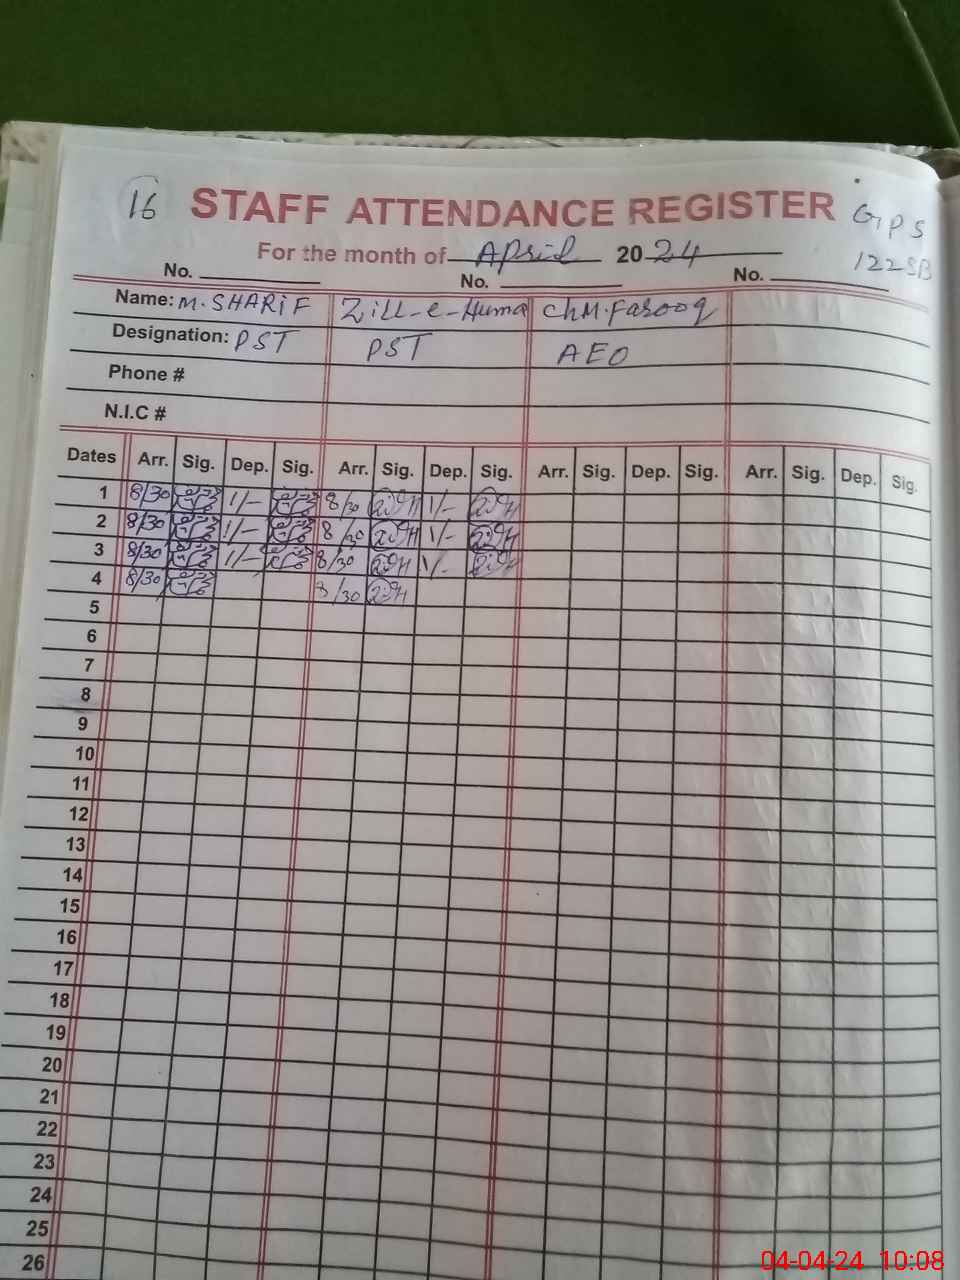 16 STAFF ATTENDANCE REGISTER GPS
For the month of April 2024 122SB
No. No. No.
Name: M. SHARIF Zill-e-Huma Ch M. Farooq
Designation: PST PST AEO
Phone #
N.I.C #
Dates Arr. Sig. Dep. Sig. Arr. Sig. Dep. Sig. Arr. Sig. Dep. Sig. Arr. Sig. Dep. Sig.
1 8/30 1/- 8/30 1/-
2 8/30 1/- 8/30 1/-
3 8/30 1/- 8/30 1/-
4 8/30 8/30
5
6
7
8
9
10
11
12
13
14
15
16
17
18
19
20
21
22
23
24
25
26
04-04-24 10:08